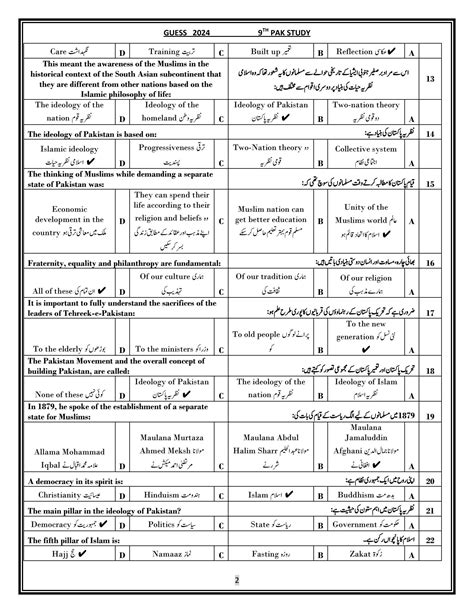 GUESS 2024 9TH PAK STUDY
Care نگہداشت D Training تربیت C Built up تعمیر B Reflection عکاس ✔ A
This meant the awareness of the Muslims in the
historical context of the South Asian subcontinent that
they are different from other nations based on the
Islamic philosophy of life:
اس سے مراد برصغیر جنوبی ایشیا کے تاریخی حوالے سے مسلمانوں کا یہ شعور تھا کہ وہ اسلامی
نظریہ حیات کی بنیاد پر دوسری اقوام سے مختلف ہیں:
13
The ideology of the
nation نظریہ قوم D
Ideology of the
homeland نظریہ وطن C
Ideology of Pakistan
نظریہ پاکستان B
Two-nation theory
دو قومی نظریہ ✔ A
The ideology of Pakistan is based on: نظریہ پاکستان کی بنیاد ہے: 14
Islamic ideology
اسلامی نظریہ حیات ✔ D
Progressiveness ترقی
پسندیت C
Two-Nation theory دو
قومی نظریہ B
Collective system
اجتماعی نظام A
The thinking of Muslims while demanding a separate
state of Pakistan was:
قیام پاکستان کا مطالبہ کرتے وقت مسلمانوں کی سوچ تھی کہ: 15
Economic
development in the
country ملک میں معاشی ترقی ہو D
They can spend their
life according to their
religion and beliefs وہ
اپنے مذہب اور عقائد کے مطابق زندگی
بسر کر سکیں ✔ C
Muslim nation can
get better education
مسلم قوم بہتر تعلیم حاصل کر سکے B
Unity of the
Muslims world عالم
اسلام کا اتحاد قائم ہو A
Fraternity, equality and philanthropy are fundamental: بھائی چارہ، مساوات اور انسان دوستی بنیادی باتیں ہیں: 16
All of these ان تمام کی ✔ D
Of our culture ہماری
تہذیب کی C
Of our tradition ہماری
ثقافت کی B
Of our religion
ہمارے مذہب کی A
It is important to fully understand the sacrifices of the
leaders of Tehreek-e-Pakistan:
ضروری ہے کہ تحریک پاکستان کے رہنماؤں کی قربانیوں کا پوری طرح علم ہو: 17
To the elderly بوڑھوں کو D
To the ministers وزراء کو C
To old people پرانے لوگوں
کو B
To the new
generation نئی نسل کو ✔ A
The Pakistan Movement and the overall concept of
building Pakistan, are called:
تحریک پاکستان اور تعمیر پاکستان کے مجموعی تصور کو کہتے ہیں: 18
None of these کوئی نہیں D
Ideology of Pakistan
نظریہ پاکستان ✔ C
The ideology of the
nation نظریہ قوم B
Ideology of Islam
نظریہ اسلام A
In 1879, he spoke of the establishment of a separate
state for Muslims:
1879 میں مسلمانوں کے لیے الگ ریاست کے قیام کی بات کی: 19
Allama Mohammad
Iqbal علامہ محمد اقبال نے D
Maulana Murtaza
Ahmed Meksh مولانا
مرتضیٰ احمد میکش نے C
Maulana Abdul
Halim Sharr مولانا عبدالحلیم
شرر نے B
Maulana
Jamaluddin
Afghani مولانا جمال الدین
افغانی نے ✔ A
A democracy in its spirit is: اپنی روح میں ایک جمہوری نظام ہے: 20
Christianity عیسائیت D Hinduism ہندومت C Islam اسلام ✔ B Buddhism بدھ مت A
The main pillar in the ideology of Pakistan? نظریہ پاکستان میں اہم ستون کی حیثیت ہے: 21
Democracy جمہوریت کو ✔ D Politics سیاست کو C State ریاست کو B Government حکومت کو A
The fifth pillar of Islam is: اسلام کا پانچواں رکن ہے: 22
Hajj حج ✔ D Namaaz نماز C Fasting روزہ B Zakat زکوٰۃ A
2